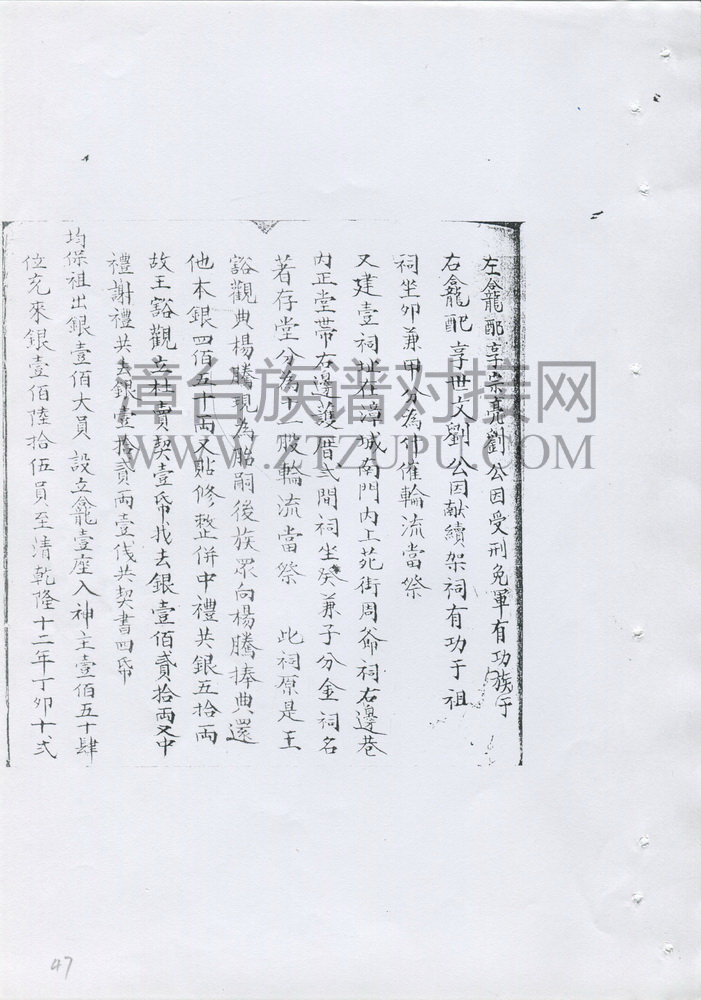 左龕配享宗亮劉公因受刑免軍有功族于
右龕配享世文劉公因献續架祠有功于祖
祠坐卯兼甲分為仲惟輪流當祭
又建壹祠址在漳城南門内上苑街周爺祠右邊巷
内正堂帶右邊護厝弍間祠坐癸兼子分金祠名
著存堂分為十一股輪流當祭 此祠原是王
豁觀典楊騰現為胎嗣後族眾向楊騰捧典還
他本銀四佰五十兩又貼修整併中禮共銀五拾兩
故王豁觀立杜賣契壹帋找去銀壹佰貳拾兩又中
禮謝禮共去銀壹拾貳兩壹伐共契書四帋
均保祖出銀壹佰大員設立龕壹座入神主壹佰五十肆
位充來銀壹佰陸拾伍員至清乾隆十二年丁卯十弍
章台族谱对接网
WWW.ZTZUPU.COM
47